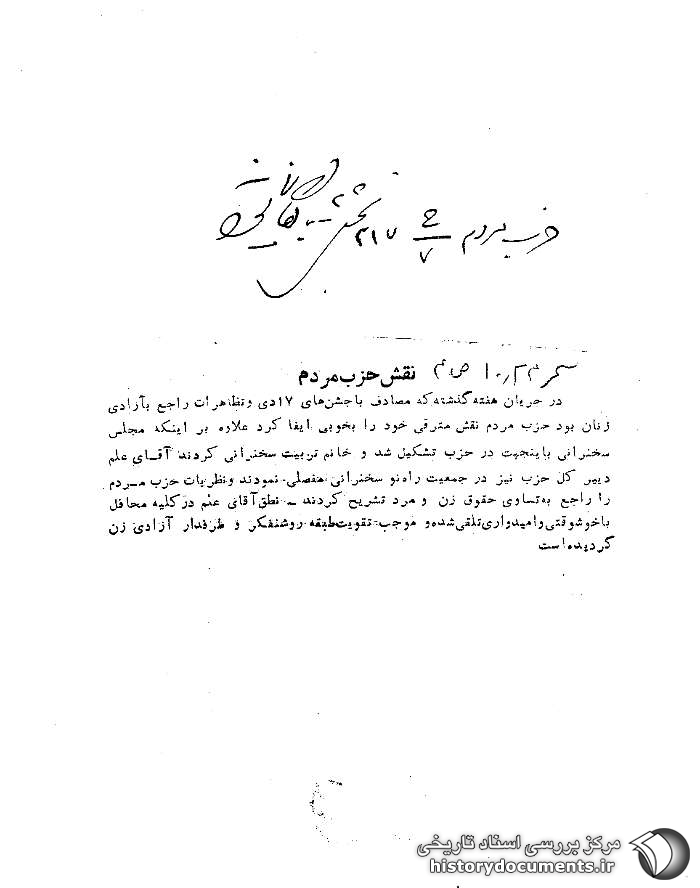 حزب مردم ج
۷
۲۱۷
نقش حزب مردم
در جریان هفته گذشته که مصادف با جشن‌های ۱۷دی و تظاهرات راجع بآزادی
زنان بود حزب مردم نقش مترقی خود را بخوبی ایفا کرد علاوه بر اینکه مجلس
سخنرانی باینجهت در حزب تشکیل شد و خانم تربیت سخنرانی کردند آقـای علم
دبیر کل حزب نیز در جمعیت راه‌نو سخنرانی مفصلی نمودند و نظریات حزب مـردم
را راجع به‌تساوی حقوق زن و مرد تشریح کردند ـ نطق آقای علم در کلیه محافل
باخوشوقتی و امیدواری تلقی‌شده و موجب تقویت طبقه روشنفکر و طرفدار آزادی زن
گردیده است
مرکز بررسی اسناد تاریخی
historydocuments.ir